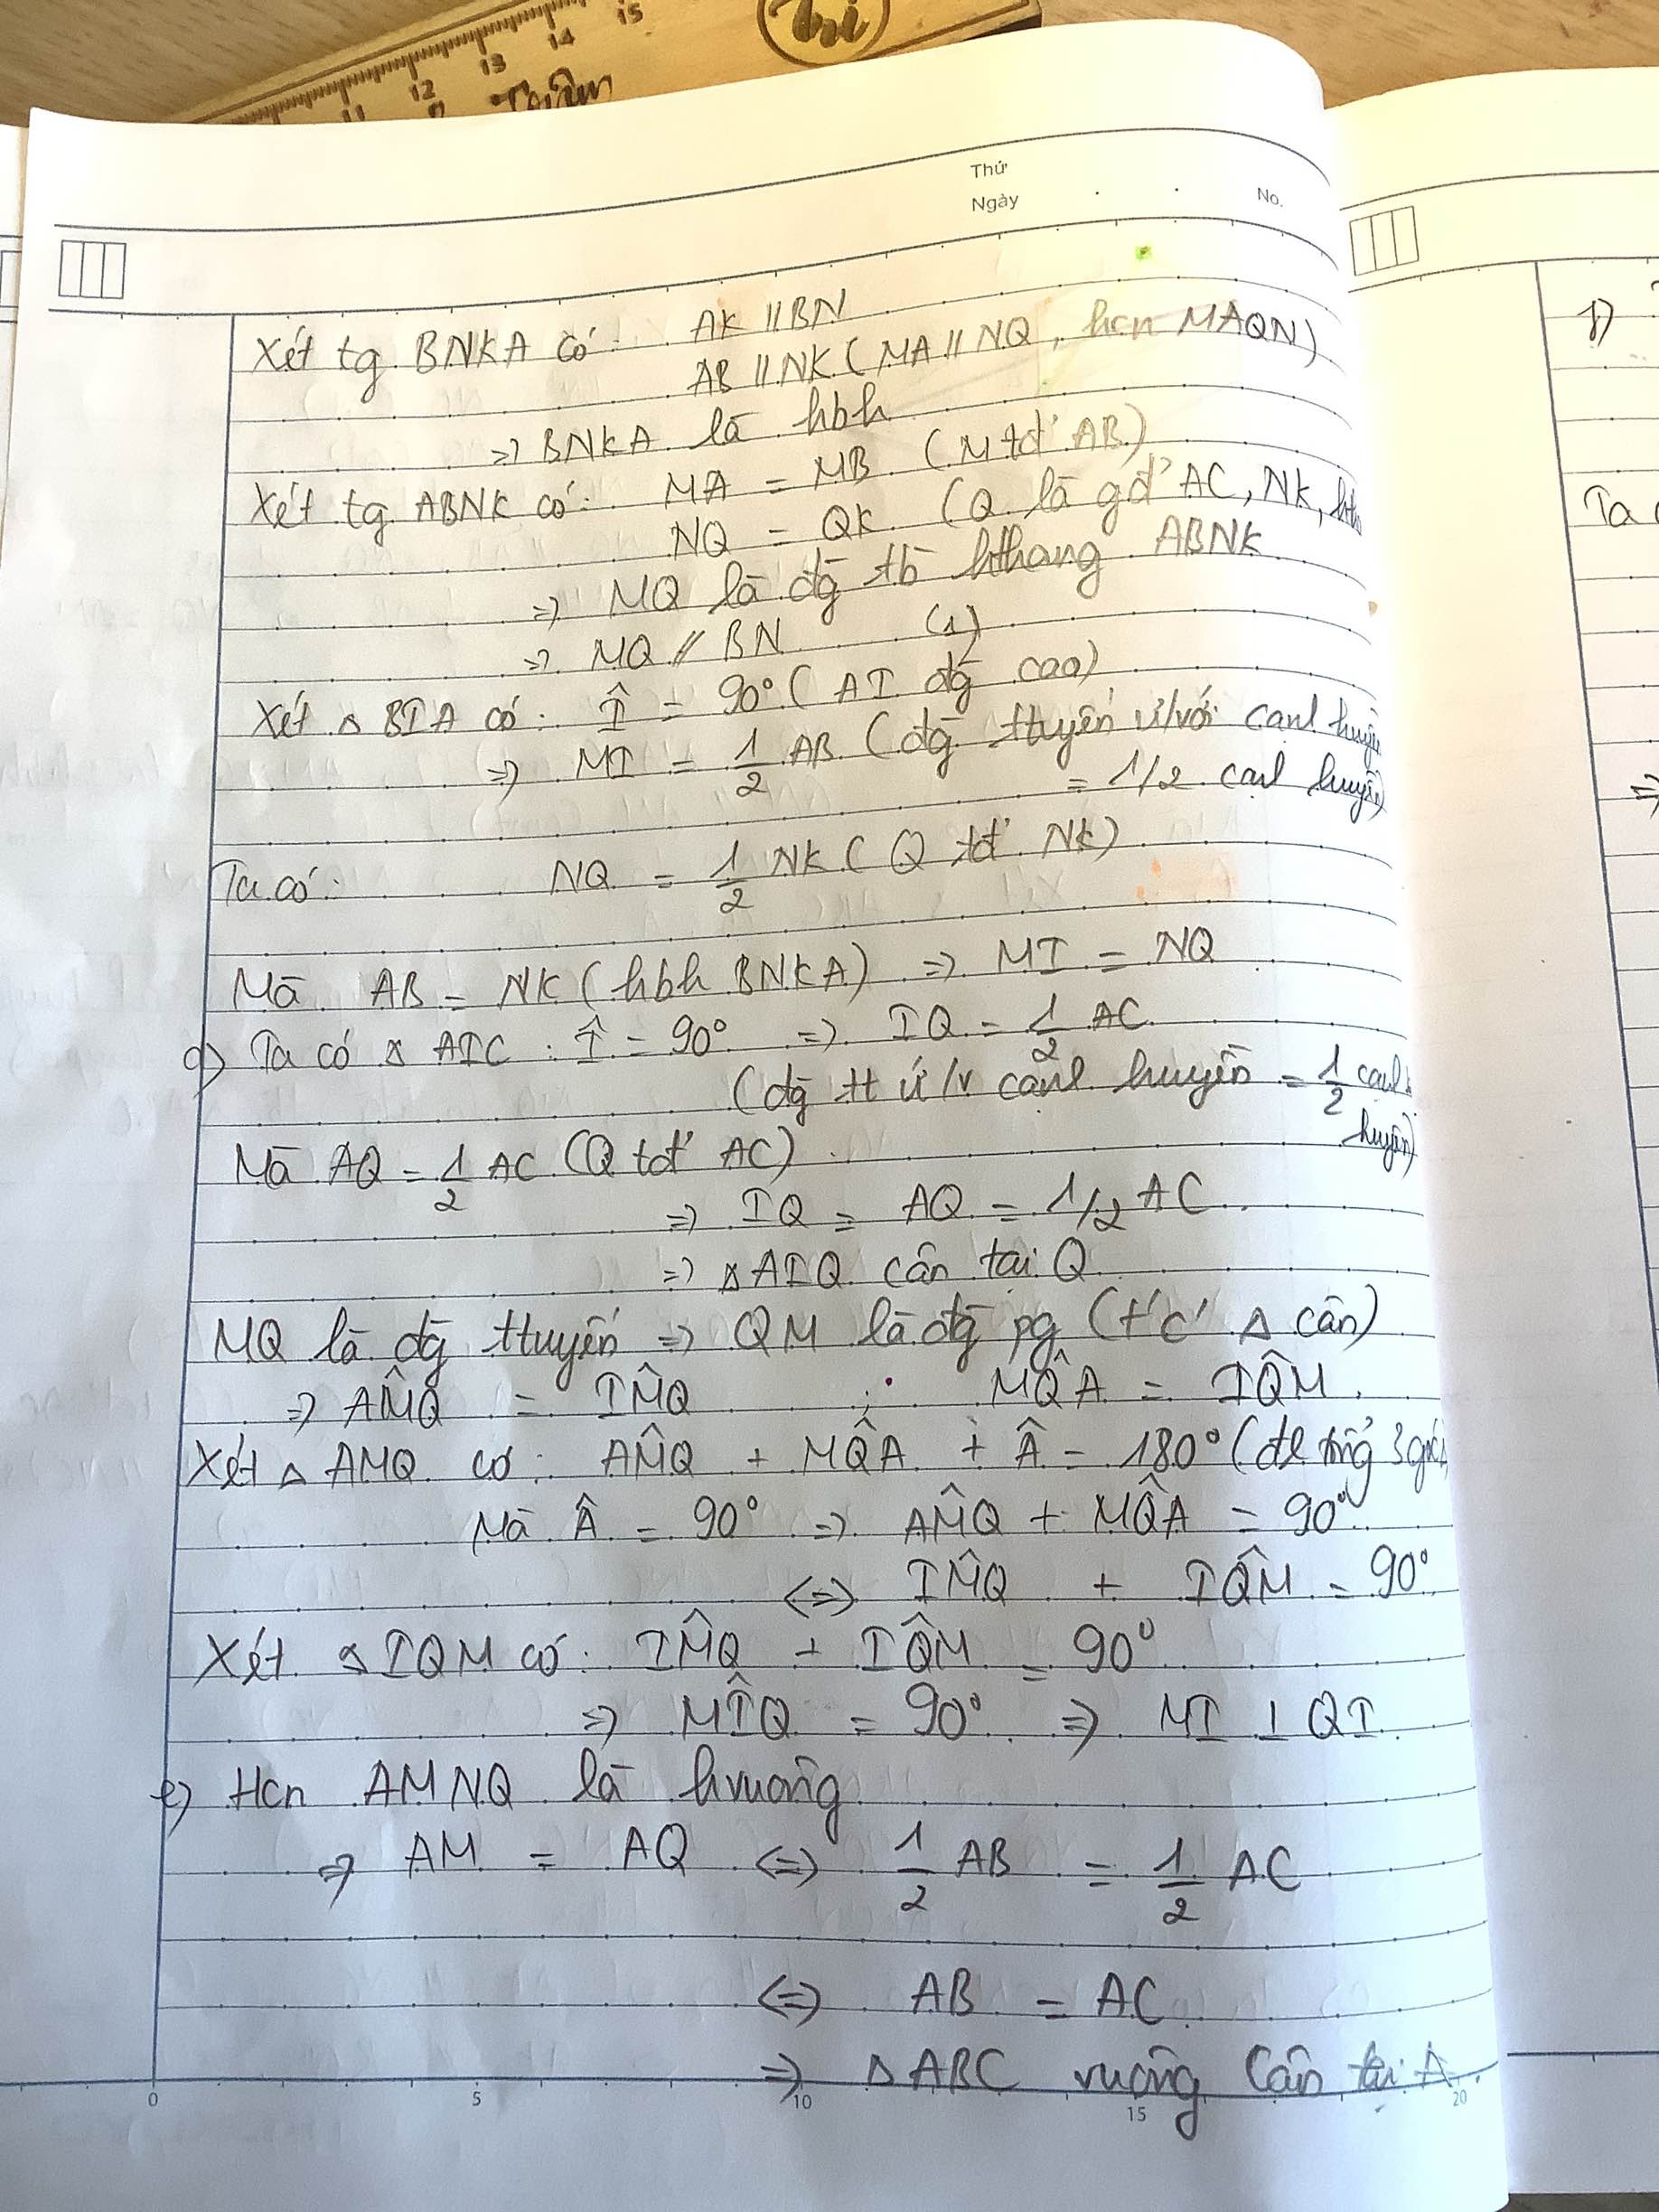 15
14
13
12
11
Trí
Thiện
Thứ
Ngày
No.
Xét tg BNKA có: AK // BN
AB // NK ( MA // NQ, hcn MAQN)
=> BNKA là hbh
Xét tg ABNK có: MA = MB (M tđ' AB)
NQ = QK (Q là gđ' AC, NK,
=> MQ là đg tb hthang ABNK
=> MQ // BN (1)
Xét △ BIA có: Î = 90° ( AI đg cao)
=> MI = 1/2 AB (đg ttuyến ư/với canl huyền
= 1/2 canl huyền)
Ta có: NQ = 1/2 NK ( Q tđ' NK)
Mà AB = NK ( hbh BNKA) => MI = NQ
d) Ta có △ AIC : Î = 90° => IQ = 1/2 AC
(đg tt ứ/v canl huyền = 1/2 canl
huyền)
Mà AQ = 1/2 AC (Q tđ' AC)
=> IQ = AQ = 1/2 AC
=> △ AIQ cân tại Q
MQ là đg ttuyến => QM là đg pg (t'c' △ cân)
=> AM̂Q = IM̂Q ; MQ̂A = IQ̂M
Xét △ AMQ có: AM̂Q + MQ̂A + Â = 180° (đl tổng 3 góc
Mà Â = 90° => AM̂Q + MQ̂A = 90°
<=> IM̂Q + IQ̂M = 90°
Xét △ IQM có: IM̂Q + IQ̂M = 90°
=> MÎQ = 90° => MI ⊥ QI
e) Hcn AMNQ là hvuông
=> AM = AQ <=> 1/2 AB = 1/2 AC
<=> AB = AC
=> △ ABC vuông cân tại A
0 5 10 15 20
f)
Ta
=>